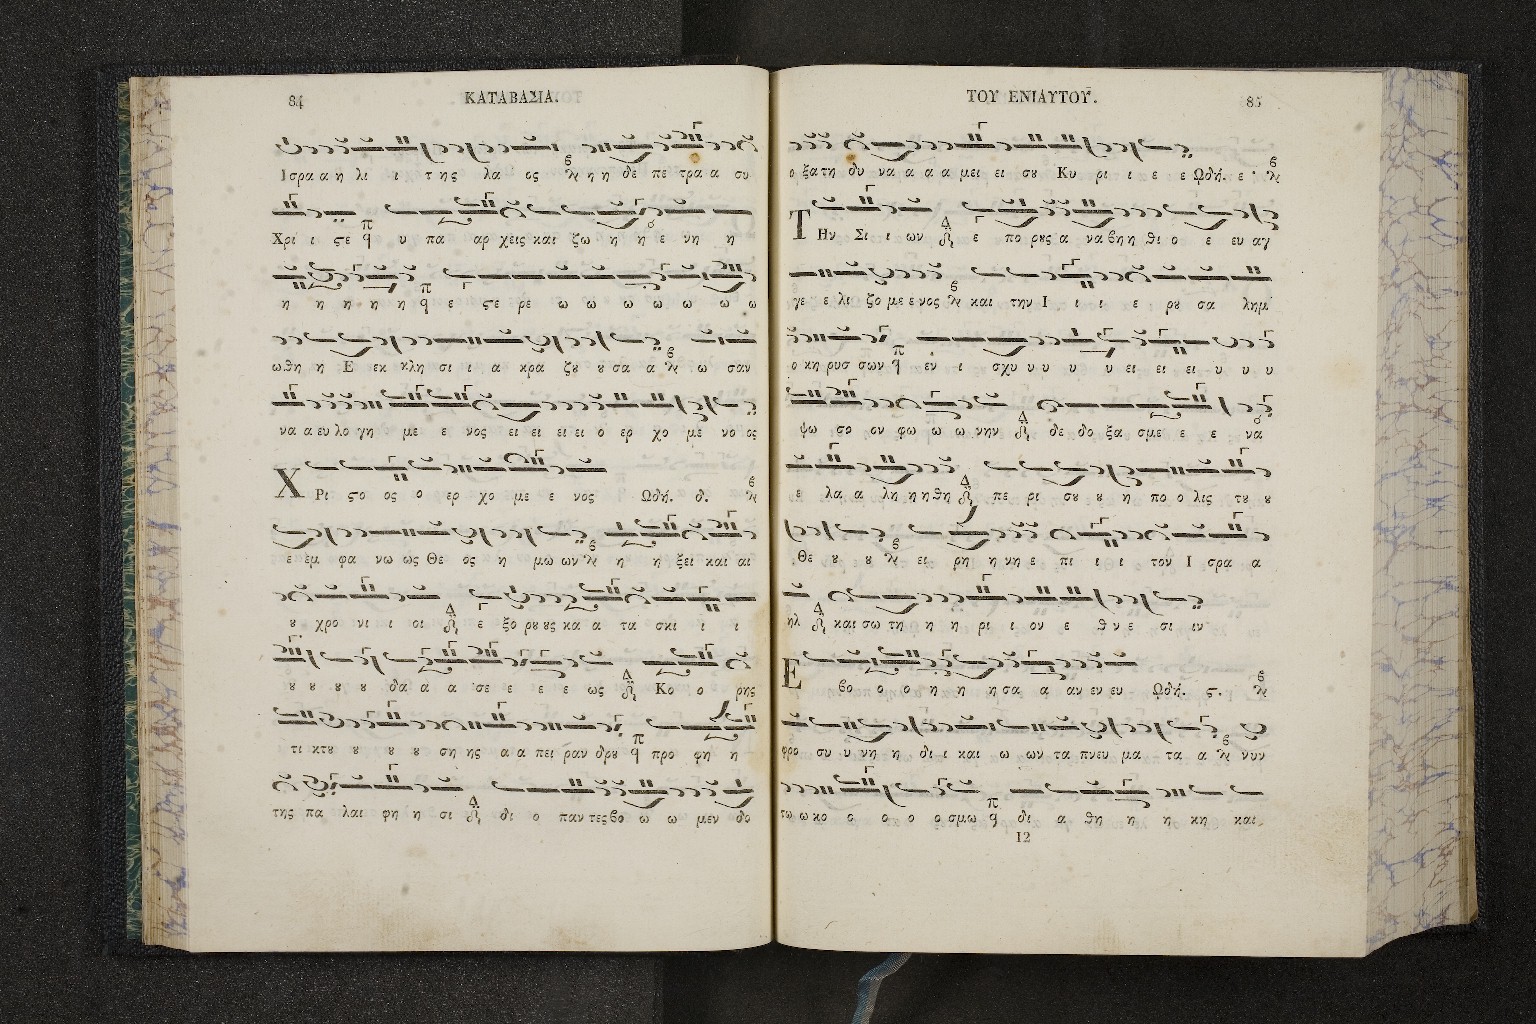 84
ΚΑΤΑΒΑΣΙΑ.
Ισρα α η λι ι τ ης λα ος η η δε πε τρα α συ
Χρι ι ϛε υ πα αρ χεις και ζω η η ε νη η
η η η η η ε ϛε ρε ω ω ω ω ω ω ω
ω θη η Ε εκ κλη σι ι α κρα ζȣ ȣ σα α ω σαν
να α ευ λο γη με ε νος ει ει ει ει ο ερ χο με νο ος
Χ Ρι ϛο ος ο ερ χο με ε νος Ωδή. δ.
ε εμ φα νω ως Θε ος η μω ων η η ξει και αι
ȣ χρο νι ι οι ε ξο ρȣ ȣς κα α τα σκι ι ι
ȣ ȣ ȣ ȣ δα α α σε ε ε ε ως Κο ο ρης
τι κτȣ ȣ ȣ ȣ ση ης α α πει ραν δρȣ προ φη η
της πα λαι φη η σι δι ο παν τες βο ω ω μεν δο
ΤΟΥ ΕΝΙΑΥΤΟΥ.
85
ο ξα τη δυ να α α α μει ει σȣ Κυ ρι ι ε ε Ωδή. ε.
Τ Ην Σι ι ων ε πο ρȣς α να βη η θι ο ε ευ αγ
γε ε λι ζο με ε νος και την Ι ι ι ε ρȣ σα λημ
ο κη ρυσ σων εν ι σχυ υ υ υ υ ει ει ει υ υ υ
ψω σο ον φω ω ω νην δε δο ξα σμε ε ε να
ε λα α λη η η θη πε ρι σȣ ȣ η πο ο λις τȣ ȣ
Θε ȣ ȣ ει ρη η νη ε πι ι ι τον Ι σρα α
ηλ και σω τη η η ρι ι ον ε θν ε σι ιν
Ε βο ο ο η η η σα α αν εν ευ Ωδή. ϛ.
φρο συ υ νη η δι ι και ω ων τα πνευ μα τα α νυν
τω ω κο ο ο ο ο σμω δι α θη η η κη και
12